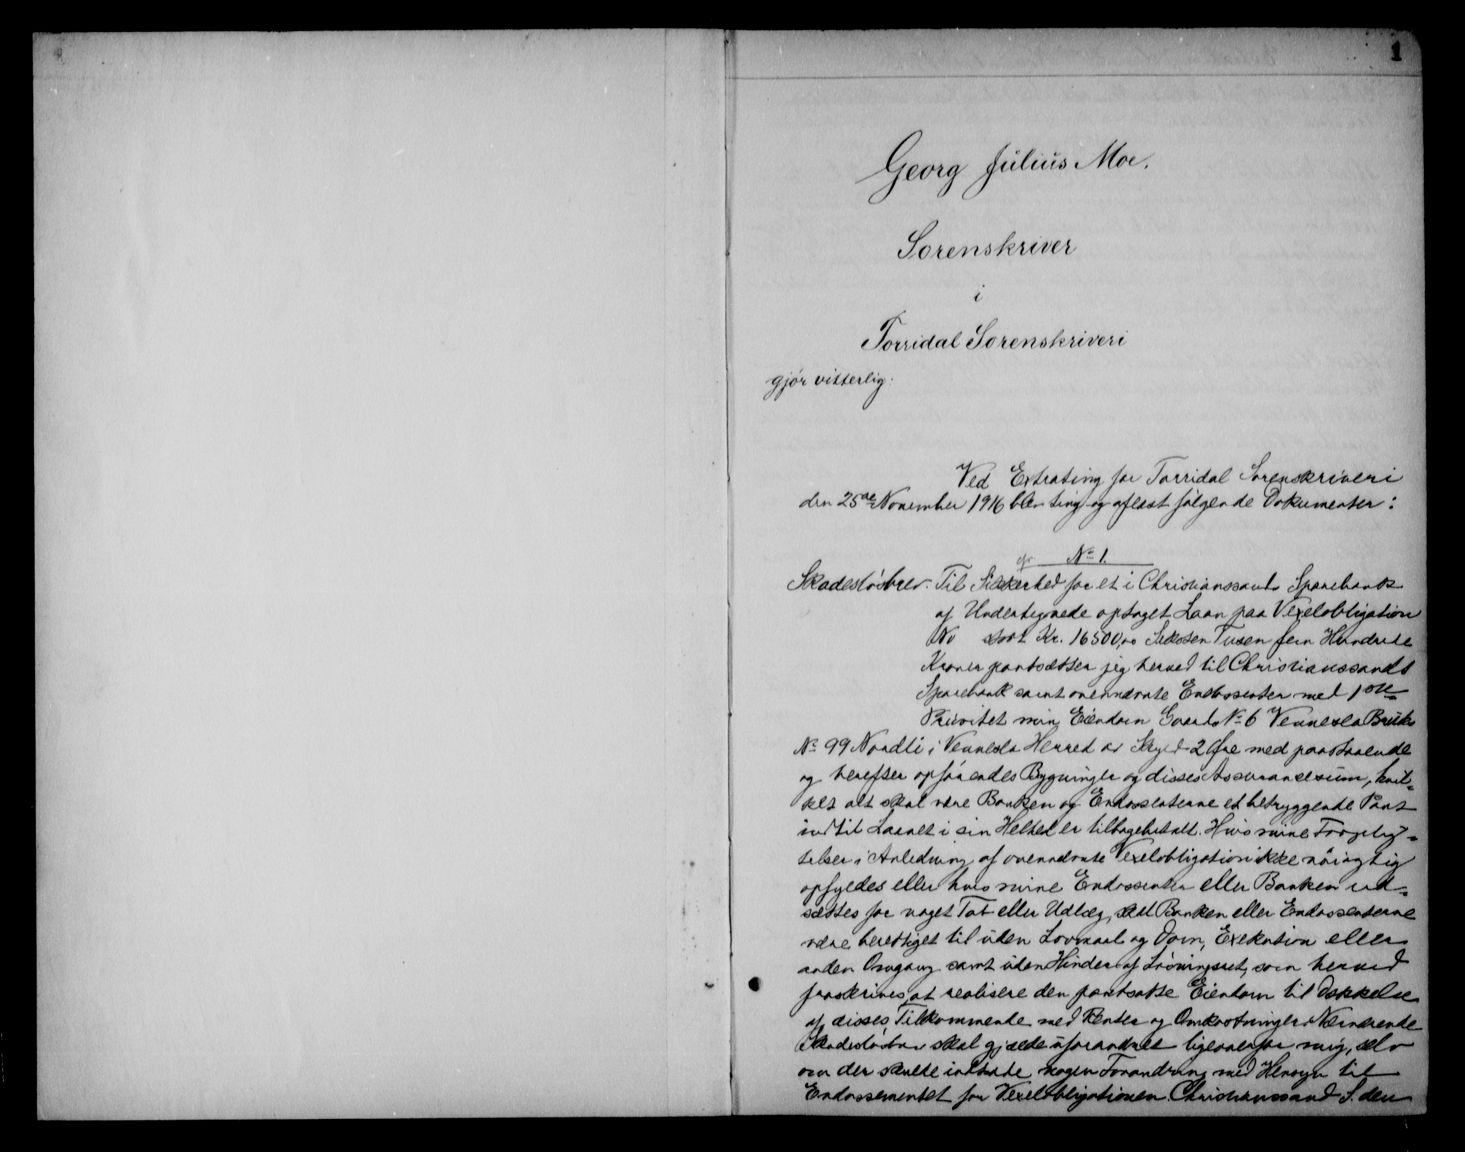 1
Georg Julius Moe.
Sorenskriver
i
Torridal Sorenskriveri
gjør vitterlig:
Ved Extrating for Torridal Sorenskriveri
den 25de November 1916 blev tinglyst og aflæst følgende Dokumenter:
No 1.
Skadesløsbrev. Til Sikkerhed for et i Christianssands Sparebank
af Undertegnede optaget Laan paa Vexelobligation
No stort Kr. 16500,00 Seksten Tusen fem Hundrede
Kroner pantsætter jeg herved til Christianssands
Sparebank samt ovennævnte Endossenter med 1ste
Prioritet min Eiendom Gaards No 6 Vennesla Bruks
No 99 Nordli i Vennesla Herred av Skyld 2 Øre med paastaaende
og herefter opførendes Bygninger og disses Assurancesum, hvil-
ket alt skal være Banken og Endossenterne et betryggende Pant
indtil Laanet i sin Helhed er tilbagebetalt. Hvis mine Forplig-
telser i Anledning af ovennævnte Vexelobligation ikke nøiagtig
opfyldes eller hvis mine Endossenter eller Banken ud-
sættes for noget Tab eller Udlæg, skal Banken eller Endossenterne
være berettiget til uden Lovmaal og Dom, Exekution eller
anden Omgang samt uden Hinder af Løsningsret, som herved
fraskrives, at realisere den pantsatte Eiendom til Dækkelse
af disses Tilkommende med Renter og Omkostninger. Nærværende
Skadesløsbrev skal gjælde uforandret ligeoverfor mig, selv
om der skulde indtræde nogen Forandring med Hensyn til
Endossementet for Vexelobligationen. Christianssand S. den